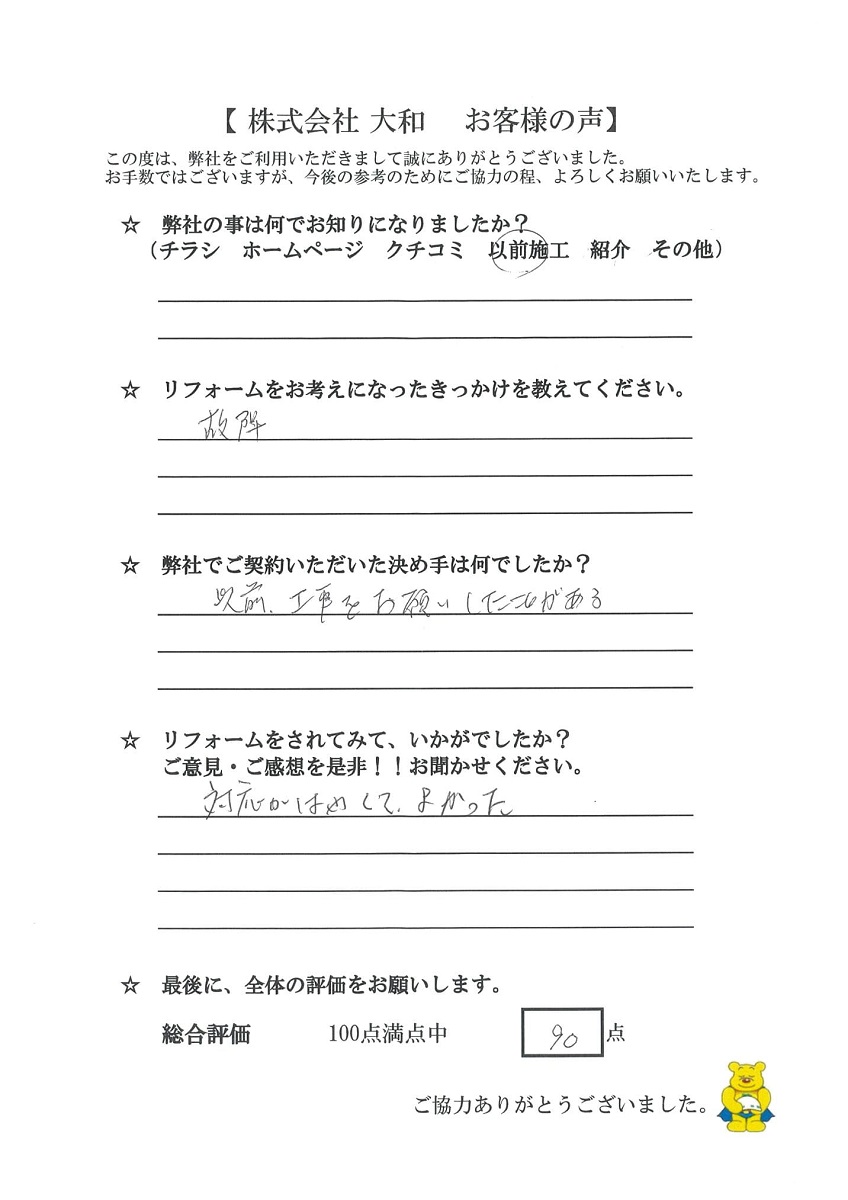 【 株式会社 大和　お客様の声】
この度は、弊社をご利用いただきまして誠にありがとうございました。
お手数ではございますが、今後の参考のためにご協力の程、よろしくお願いいたします。
☆　弊社の事は何でお知りになりましたか？
（チラシ　ホームページ　クチコミ　以前施工　紹介　その他）
☆　リフォームをお考えになったきっかけを教えてください。
故障
☆　弊社でご契約いただいた決め手は何でしたか？
以前、工事をお願いしたことがある
☆　リフォームをされてみて、いかがでしたか？
ご意見・ご感想を是非！！お聞かせください。
対応がはやくて、よかった
☆　最後に、全体の評価をお願いします。
総合評価　100点満点中　90 点
ご協力ありがとうございました。